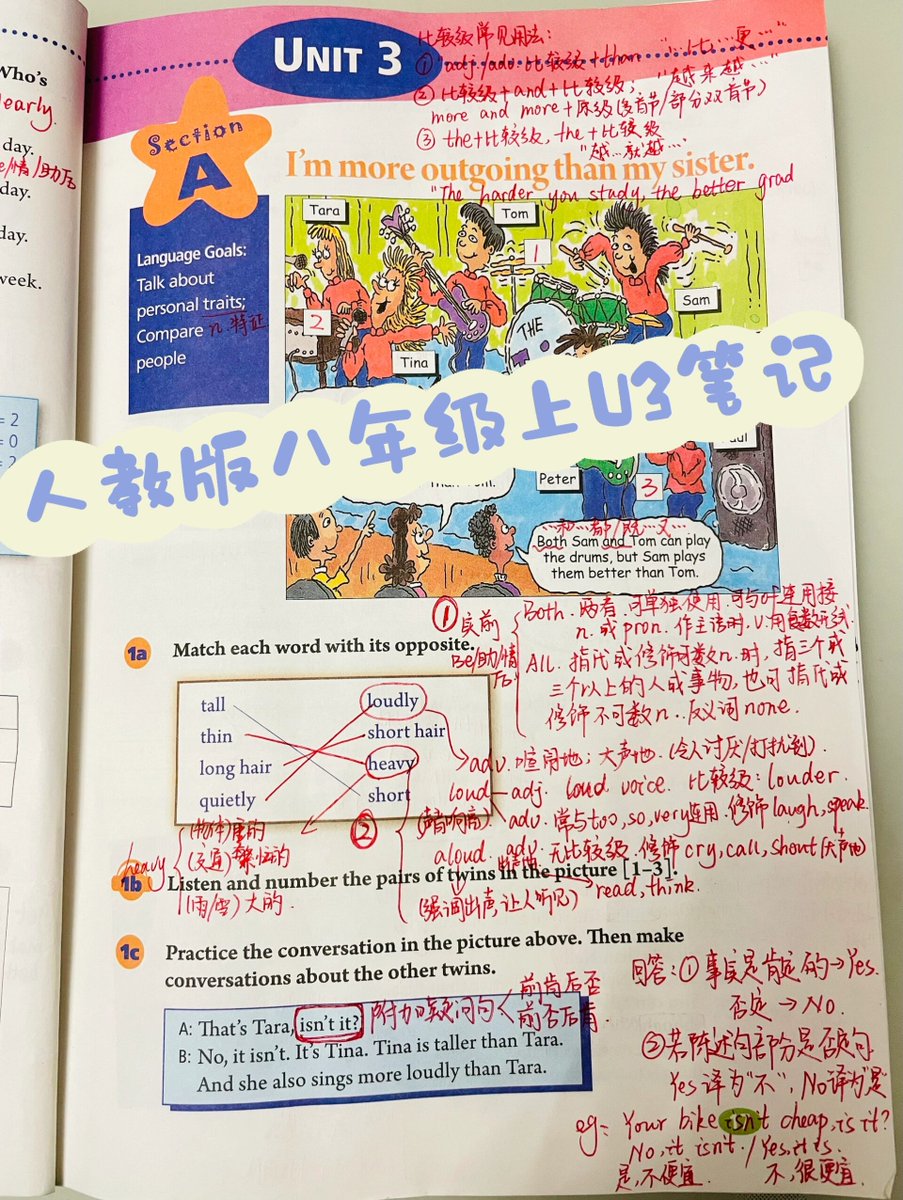 Who's
learly.
day.
be/情/助后
day.
day.
week.
= 2
= 0
= 2
UNIT 3
比较级常见用法:
① adj/adv 比较级+than "…比…更…"
② 比较级+and+比较级; "越来越…"
more and more+原级(多音节/部分双音节)
③ the+比较级, the+比较级
"越…就越…"
Section
A
I'm more outgoing than my sister.
"The harder you study, the better grad
Language Goals:
Talk about
personal traits;
Compare n.特征
people
Tara
Tom
1
Sam
2
THE
Tina
人教版八年级上U3笔记
Paul
than Tom.
Peter
3
…和…都/既…又…
Both Sam and Tom can play
the drums, but Sam plays
them better than Tom.
① 实前
Be/助/情
后
Both. 两者. 可单独使用. 可与of连用接
n. 或 pron. 作主语时. v.用复数形式.
All. 指代或修饰可数n.时, 指三个或
三个以上的人或事物, 也可指代或
修饰不可数n.. 反义词none.
1a Match each word with its opposite.
tall loudly
thin short hair
long hair heavy
quietly short
adv. 喧闹地; 大声地. (令人讨厌/打扰到).
loud— adj. loud voice. 比较级: louder.
② (声音响亮) adv. 常与too, so, very连用. 修饰laugh, speak.
aloud. adv. 无比较级. 修饰cry, call, shout(大声地)
(强调出声, 让人听见) read, think.
heavy (物体)重的
(交通)繁忙的
(雨/雪)大的.
1b Listen and number the pairs of twins in the picture [1–3].
1c Practice the conversation in the picture above. Then make
conversations about the other twins.
A: That's Tara, isn't it? 附加疑问句 前肯后否
前否后肯.
B: No, it isn't. It's Tina. Tina is taller than Tara.
And she also sings more loudly than Tara.
回答: ① 事实是肯定的→Yes.
否定 → No.
② 若陈述句部分是否定句
Yes 译为"不", No译为"是"
eg= Your bike isn't cheap, is it?
No, it isn't. / Yes, it is.
是, 不便宜 不, 很便宜.